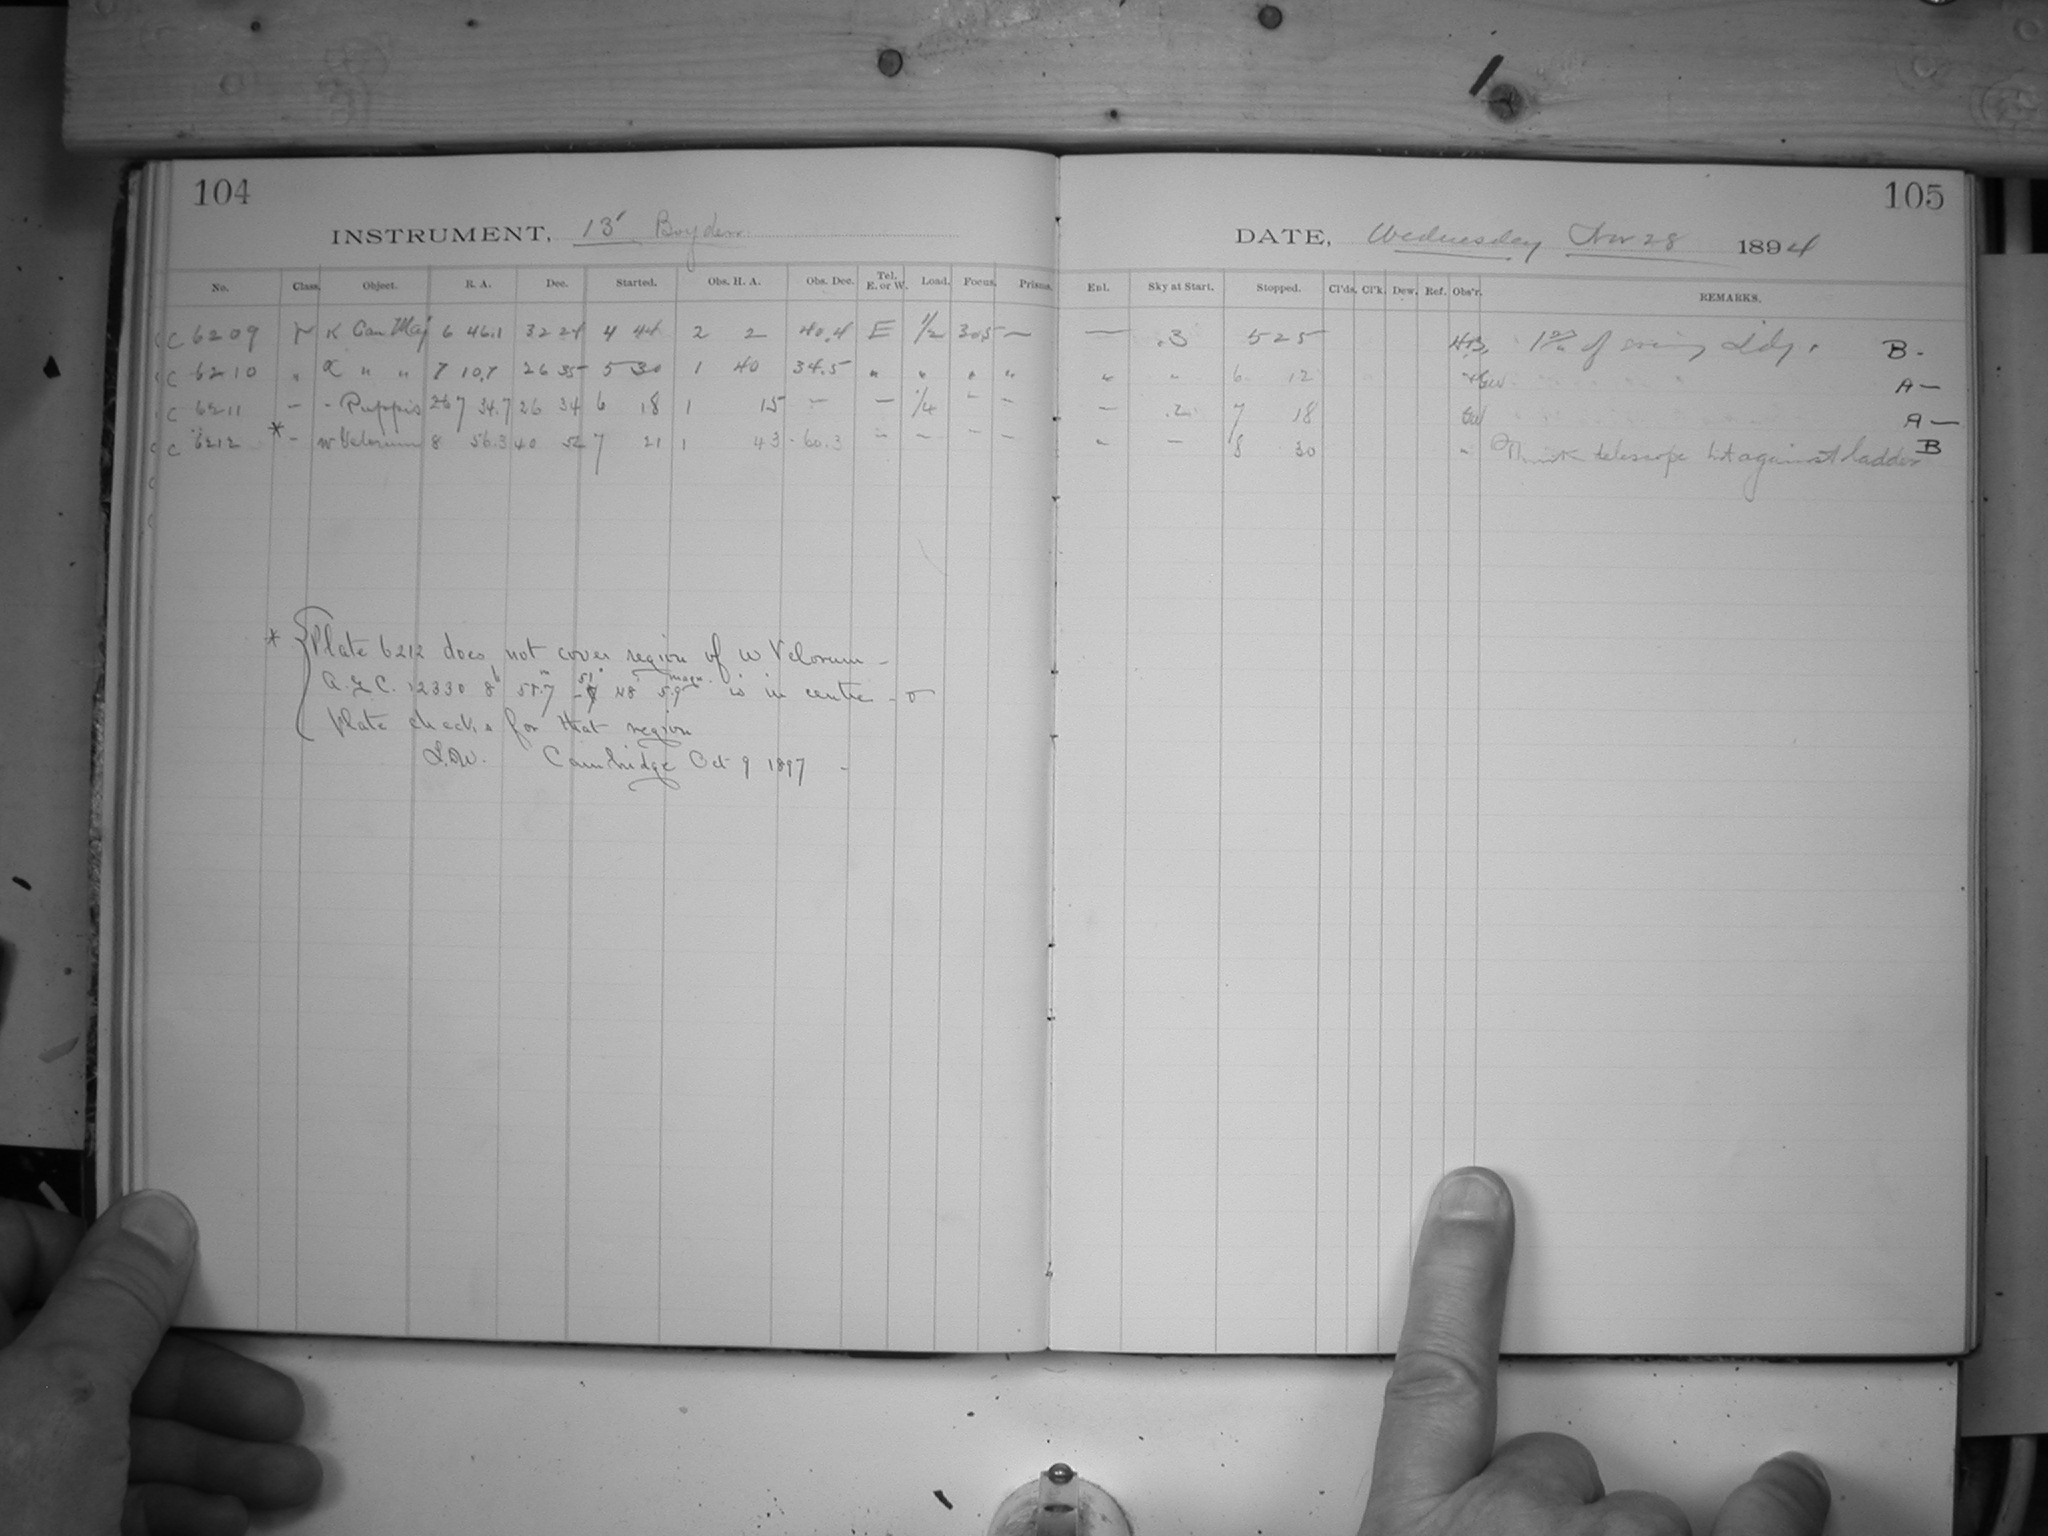 104
105
INSTRUMENT, 13" Boyden
DATE, Wednesday Nov 28 1894
No. Class. Object. R. A. Dec. Started. Obs. H. A. Obs. Dec. Tel. E. or W. Load. Focus. Prisms. Enl. Sky at Start. Stopped. Cl'ds. Cl'k. Dew. Ref. Obs'r. REMARKS.
C 6209 K Can Maj 6 46.1 32 24 4 44 2 2 40.4 E 1/2 30.5 — — .3 5 25 of B -
C 6210 " " " 7 10.7 26 35 5 30 1 40 34.5 " " " " " " 6 12 A —
C 6211 - - Puppis 26 7 34.7 26 34 6 18 1 15 — — 1/4 " — — .2 7 18 A —
C 6212 * - w Velorum 8 56.3 40 52 7 21 1 43 - 60.3 " — 8 30 " Think telescope hit against ladder B
* Plate 6212 does not cover region of w Velorum -
A.G.C. 12330 8h 58.7m 51° 48' 5.9 magn. is in centre -
plate checks for that region
Cambridge Oct 9 1897 -